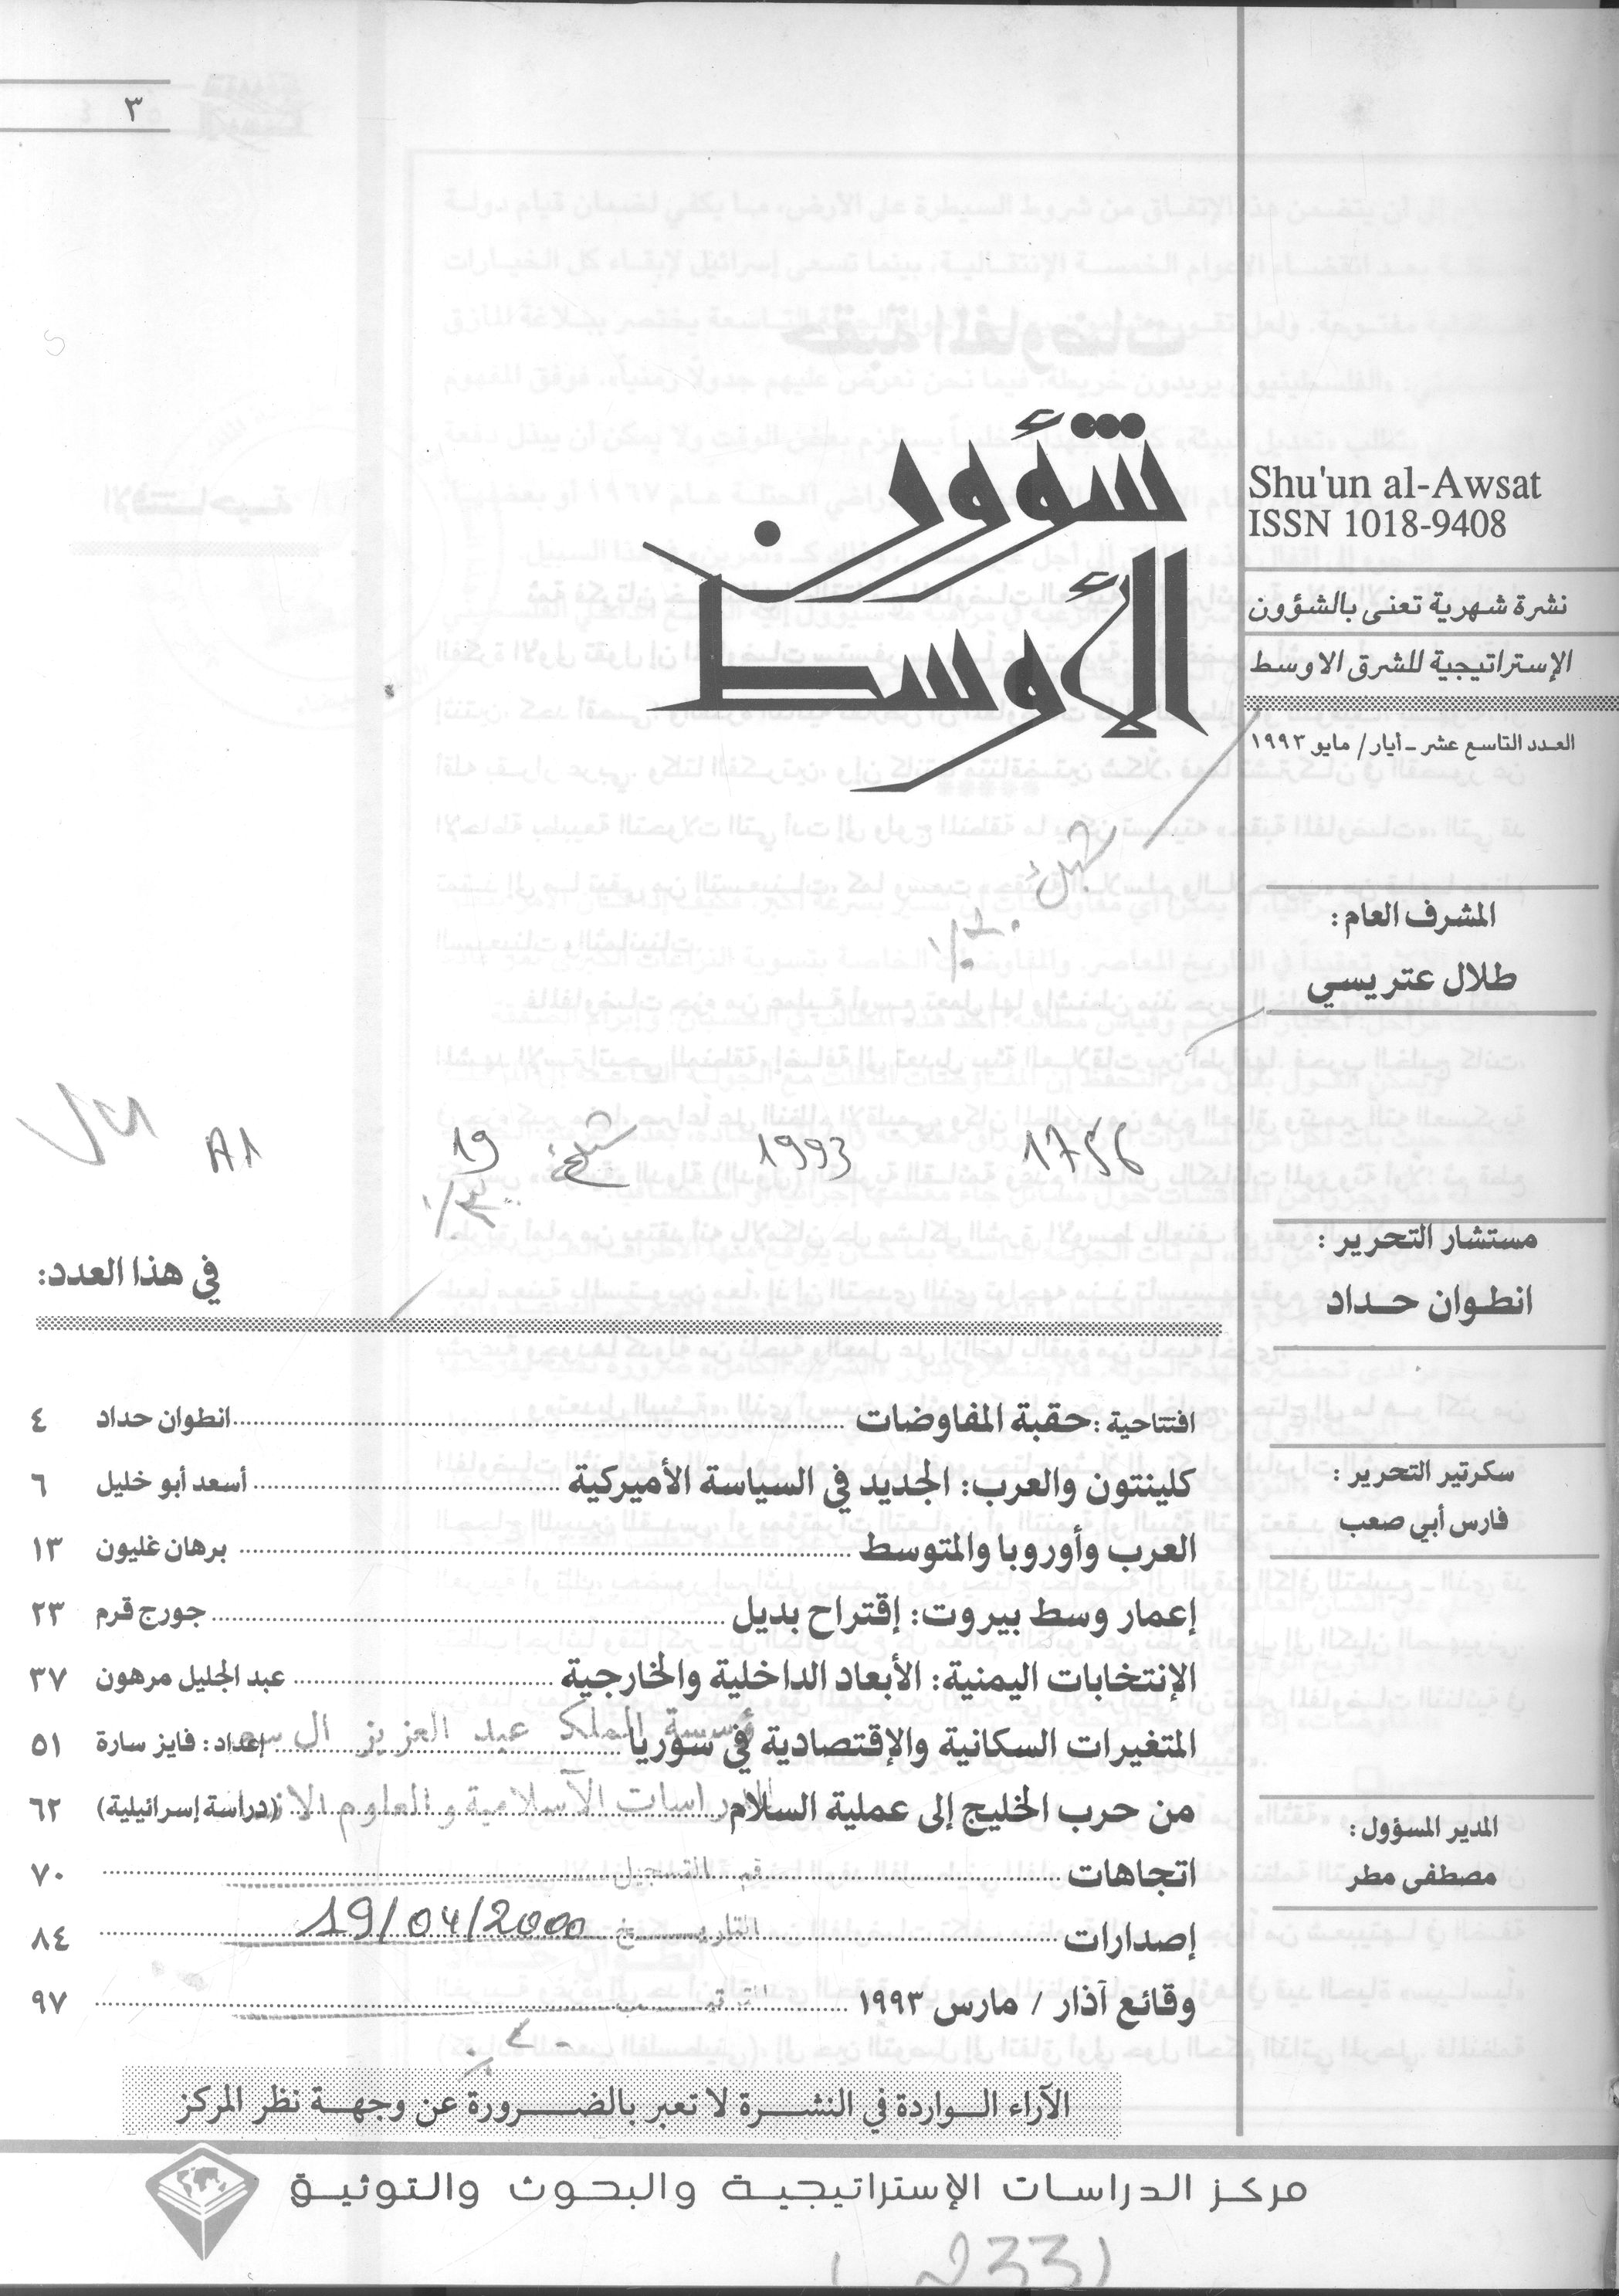 ٣
شؤون
الأوسط
Shu'un al-Awsat
ISSN 1018-9408
نشرة شهرية تعنى بالشؤون
الإستراتيجية للشرق الاوسط
العدد التاسع عشر ـ أيار/ مايو ١٩٩٣
المشرف العام:
طلال عتريسي
مستشار التحرير:
انطوان حداد
سكرتير التحرير:
فارس أبي صعب
المدير المسؤول:
مصطفى مطر
A1 19 1993 1756
في هذا العدد:
افتتاحية: حقبة المفاوضات انطوان حداد ٤
كلينتون والعرب: الجديد في السياسة الأميركية أسعد أبو خليل ٦
العرب وأوروبا والمتوسط برهان غليون ١٣
إعمار وسط بيروت: إقتراح بديل جورج قرم ٢٣
الإنتخابات اليمنية: الأبعاد الداخلية والخارجية عبد الجليل مرهون ٣٧
المتغيرات السكانية والإقتصادية في سوريا إعداد: فايز سارة ٥١
من حرب الخليج إلى عملية السلام (دراسة إسرائيلية) ٦٢
اتجاهات ٧٠
إصدارات ٨٤
وقائع آذار / مارس ١٩٩٣ ٩٧
الملك عبد العزيز
الاسلامية والعلوم
التسجيل
التاريخ 19/04/2000
الآراء الواردة في النشرة لا تعبر بالضرورة عن وجهة نظر المركز
مركز الدراسات الإستراتيجية والبحوث والتوثيق
233